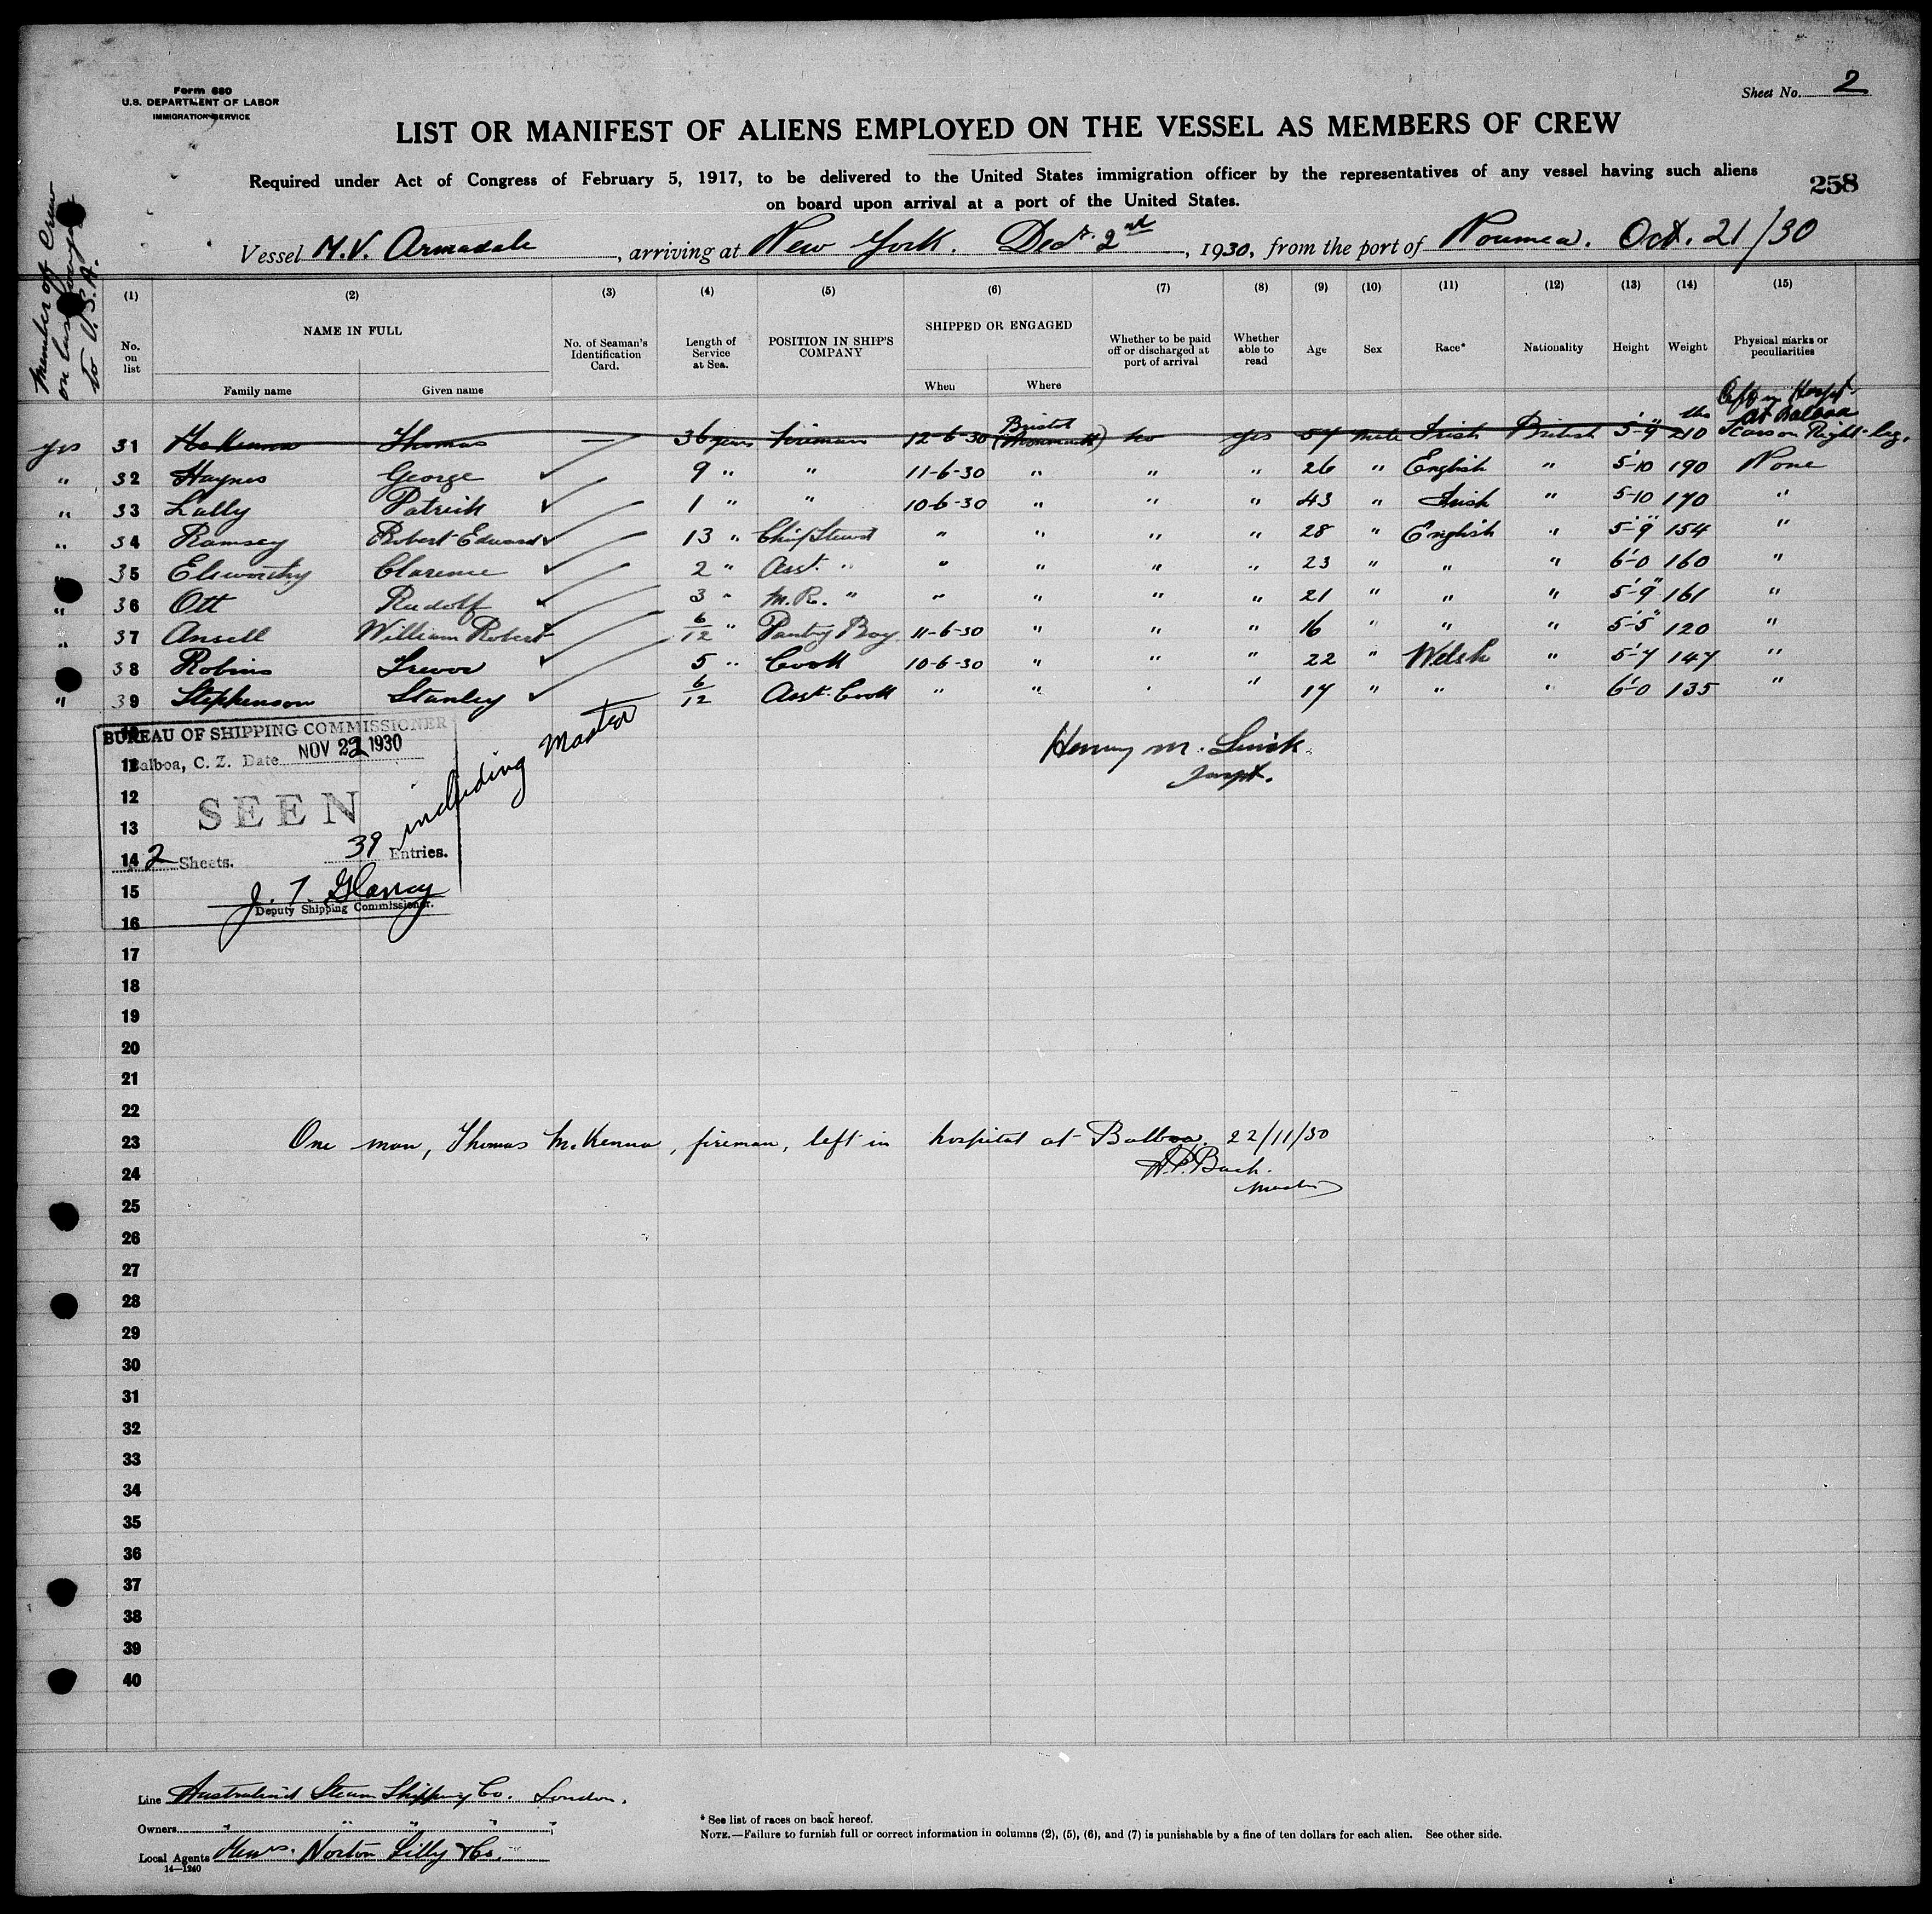 Form 680
U.S. DEPARTMENT OF LABOR
IMMIGRATION SERVICE
Sheet No. 2
LIST OR MANIFEST OF ALIENS EMPLOYED ON THE VESSEL AS MEMBERS OF CREW
Required under Act of Congress of February 5, 1917, to be delivered to the United States immigration officer by the representatives of any vessel having such aliens
on board upon arrival at a port of the United States.
258
Vessel M.V. Armadale, arriving at New York. Decr. 2nd, 1930, from the port of Noumea. Oct. 21/30
Member of Crew
on last voyage
to U.S.A.
(1) (2) (3) (4) (5) (6) (7) (8) (9) (10) (11) (12) (13) (14) (15)
No. on list NAME IN FULL Family name Given name No. of Seaman's Identification Card. Length of Service at Sea. POSITION IN SHIP'S COMPANY SHIPPED OR ENGAGED When Where Whether to be paid off or discharged at port of arrival Whether able to read Age Sex Race* Nationality Height Weight Physical marks or peculiarities
Left in Hospt.
at Balboa
yes 31 McKenna Thomas — 36 years Fireman 12-6-30 Bristol (Avonmouth) No yes 57 male Irish British 5'-9" 210 lbs Scar on Right leg.
" 32 Haynes George 9 " " 11-6-30 " " " 26 " English " 5'-10 190 None
" 33 Lally Patrick 1 " " 10-6-30 " " " 43 " Irish " 5-10 170 "
" 34 Ramsey Robert Edward 13 " Chief Steward " " " " 28 " English " 5'-9" 154 "
35 Elsworthy Clarence 2 " Asst. " " " " " 23 " " " 6'-0 160 "
" 36 Ott Rudolf 3 " M.R. " " " " " 21 " " " 5'-9" 161 "
" 37 Ansell William Robert 6/12 " Pantry Boy 11-6-30 " " " 16 " " " 5'-5" 120 "
38 Robins Trevor 5 " Cook 10-6-30 " " " 22 " Welsh " 5'-7 147 "
" 39 Stephenson Stanley 6/12 Asst. Cook " " " " 17 " " " 6'-0 135 "
BUREAU OF SHIPPING COMMISSIONER
Balboa, C. Z. Date NOV 22 1930
SEEN
2 Sheets. 39 Entries.
including Master
Deputy Shipping Commissioner.
Henry M.
Inspt.
12
13
14
15
16
17
18
19
20
21
22
23
One man, Thomas McKenna, fireman, left in hospital at Balboa. 22/11/30
Master
24
25
26
27
28
29
30
31
32
33
34
35
36
37
38
39
40
Line Australind Steam Shipping Co. London.
Owners " " " " "
Local Agents Messrs. Norton Lilly & Co.
14—1240
* See list of races on back hereof.
NOTE.—Failure to furnish full or correct information in columns (2), (5), (6), and (7) is punishable by a fine of ten dollars for each alien. See other side.